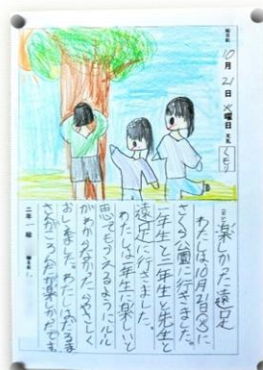 10月21日火曜日
くもり
楽しかった遠足
わたしは10月21日(火)に
さくら公園に行きました。
一年生と二年生と先生と
遠足に行きました。
わたしは一年生に楽しいと
思てもらえるようにルール
がわからなかったらやさしく
おしえました。わたしはだるま
さんがころんだが楽しかたです
二年一組